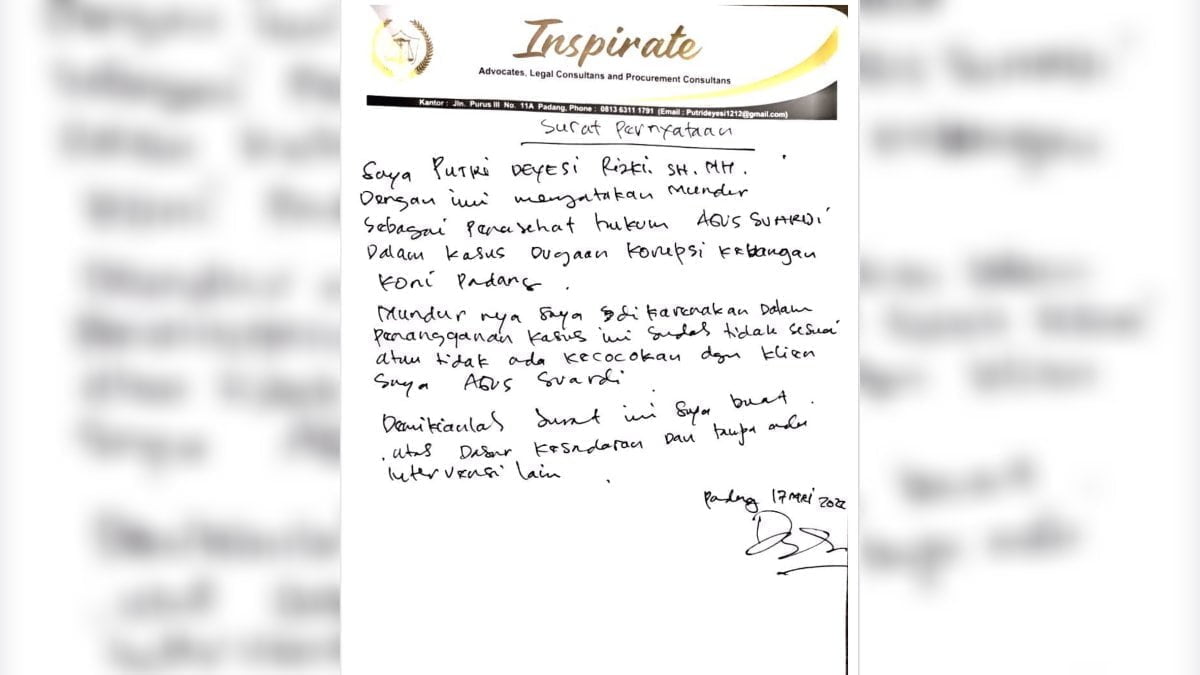 Inspirate
Advocates, Legal Consultans and Procurement Consultans
Kantor : Jln. Purus III No. 11A Padang, Phone : 0813 6311 1791 (Email : Putrideyesi1212@gmail.com)
Surat Pernyataan
Saya PUTRI DEYESI Rizki. SH. MH.
Dengan ini menyatakan Mundur
Sebagai Penasehat hukum AGUS SUARDI
Dalam kasus Dugaan Korupsi
Koni Padang.
Mundur nya Saya di karenakan Dalam
Penangganan Kasus ini sudah tidak sesuai
atau tidak ada kecocokan dgn klien
Saya AGUS Suardi
Demikianlah Surat ini Saya buat.
atas Dasar Kesadaran Dan tanpa ada
Intervensi lain.
Padang 17 Mei 2022